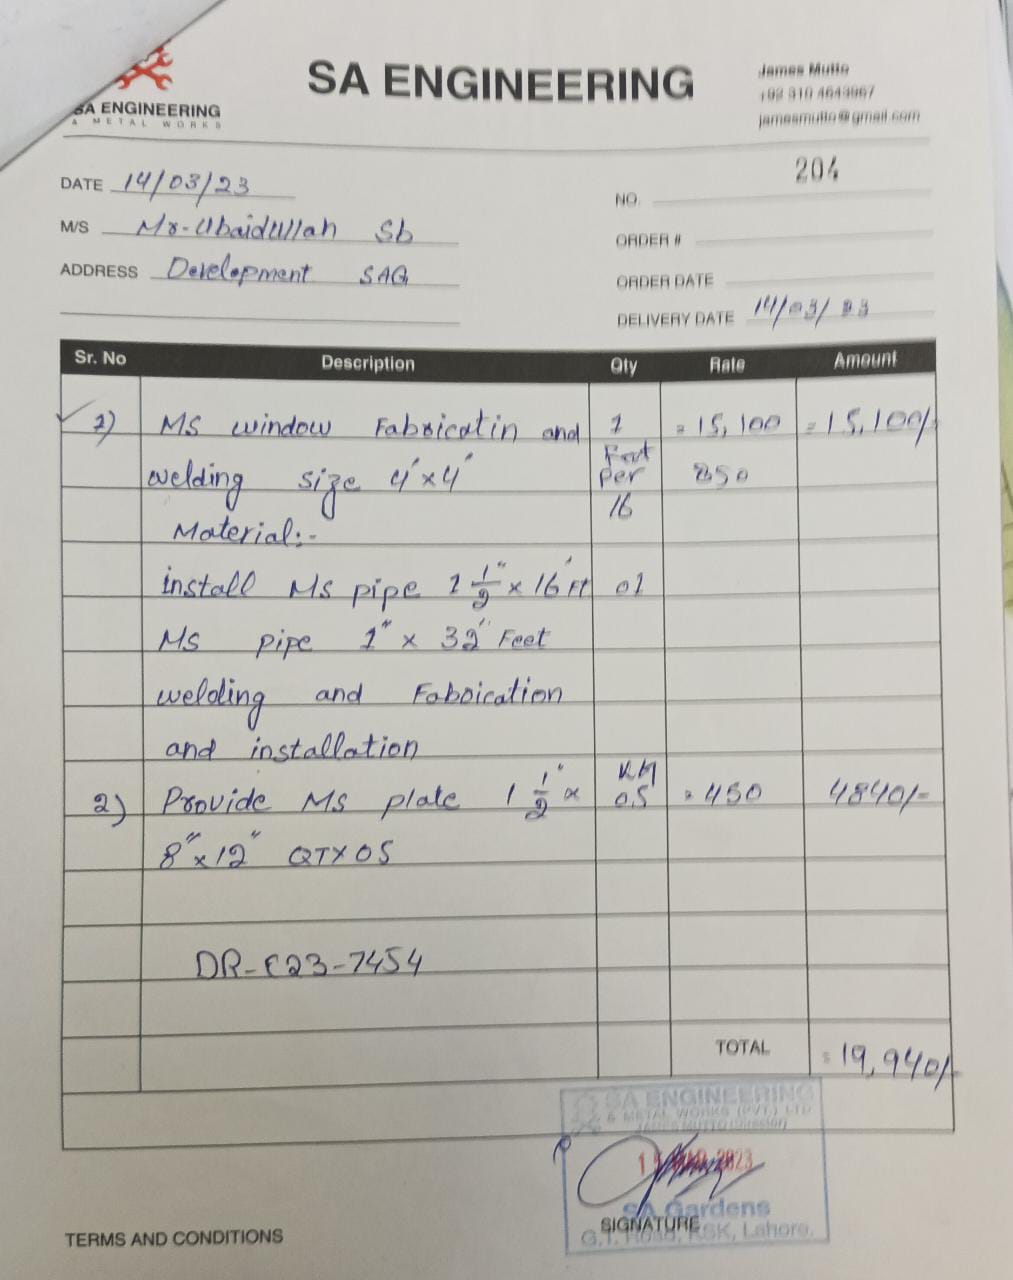 SA ENGINEERING
A METAL WORKS
SA ENGINEERING
James Mutto
+92 310 4643967
jamesmutto@gmail.com
204
DATE 14/03/23
NO.
M/S Mr-Ubaidullah Sb
ORDER #
ADDRESS Development SAG
ORDER DATE
DELIVERY DATE 14/03/23
Sr. No Description Qty Rate Amount
1) MS window Fabricatin and 1 = 15,100 = 15,100/-
Foot
welding size 4'x4' Per 850
16
Material:-
install MS pipe 1 1/2" x 16' Ft 01
MS pipe 1" x 32" Feet
welding and Fabrication
and installation
KG
2) Provide MS plate 1 1/2" x 05 450 4840/-
8" x 12" QTY 05
DR-E23-7454
TOTAL = 19,940/-
SA ENGINEERING
& METAL WORKS (PVT.) LTD
JAMES MUTTO (Director)
MAR 2023
SA Gardens
SIGNATURE
G.T. Road, KSK, Lahore.
TERMS AND CONDITIONS